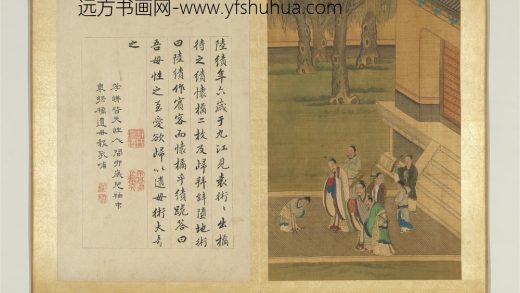 远方书画网- www.yfshuhua.com
陸績年六歲于九江見袁術〻出橘
待之績懷橘二枚及歸拜辭墮地術
曰陸績作賓客而懷橘乎績跪答曰
吾母性之至愛欲歸以遺母術大奇
之
孝悌皆天性人間六歲兒袖中
懷綠橘遺母報乳哺